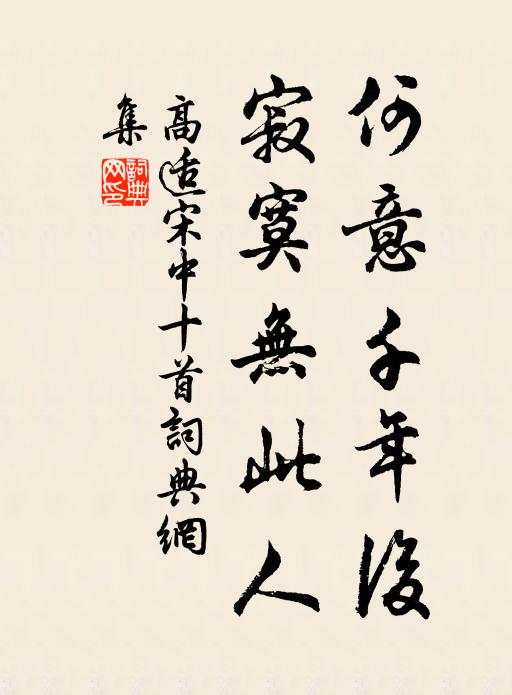 何意千年後
寂寞無此人
高適宋中十首詞典網
集
詞典
网印